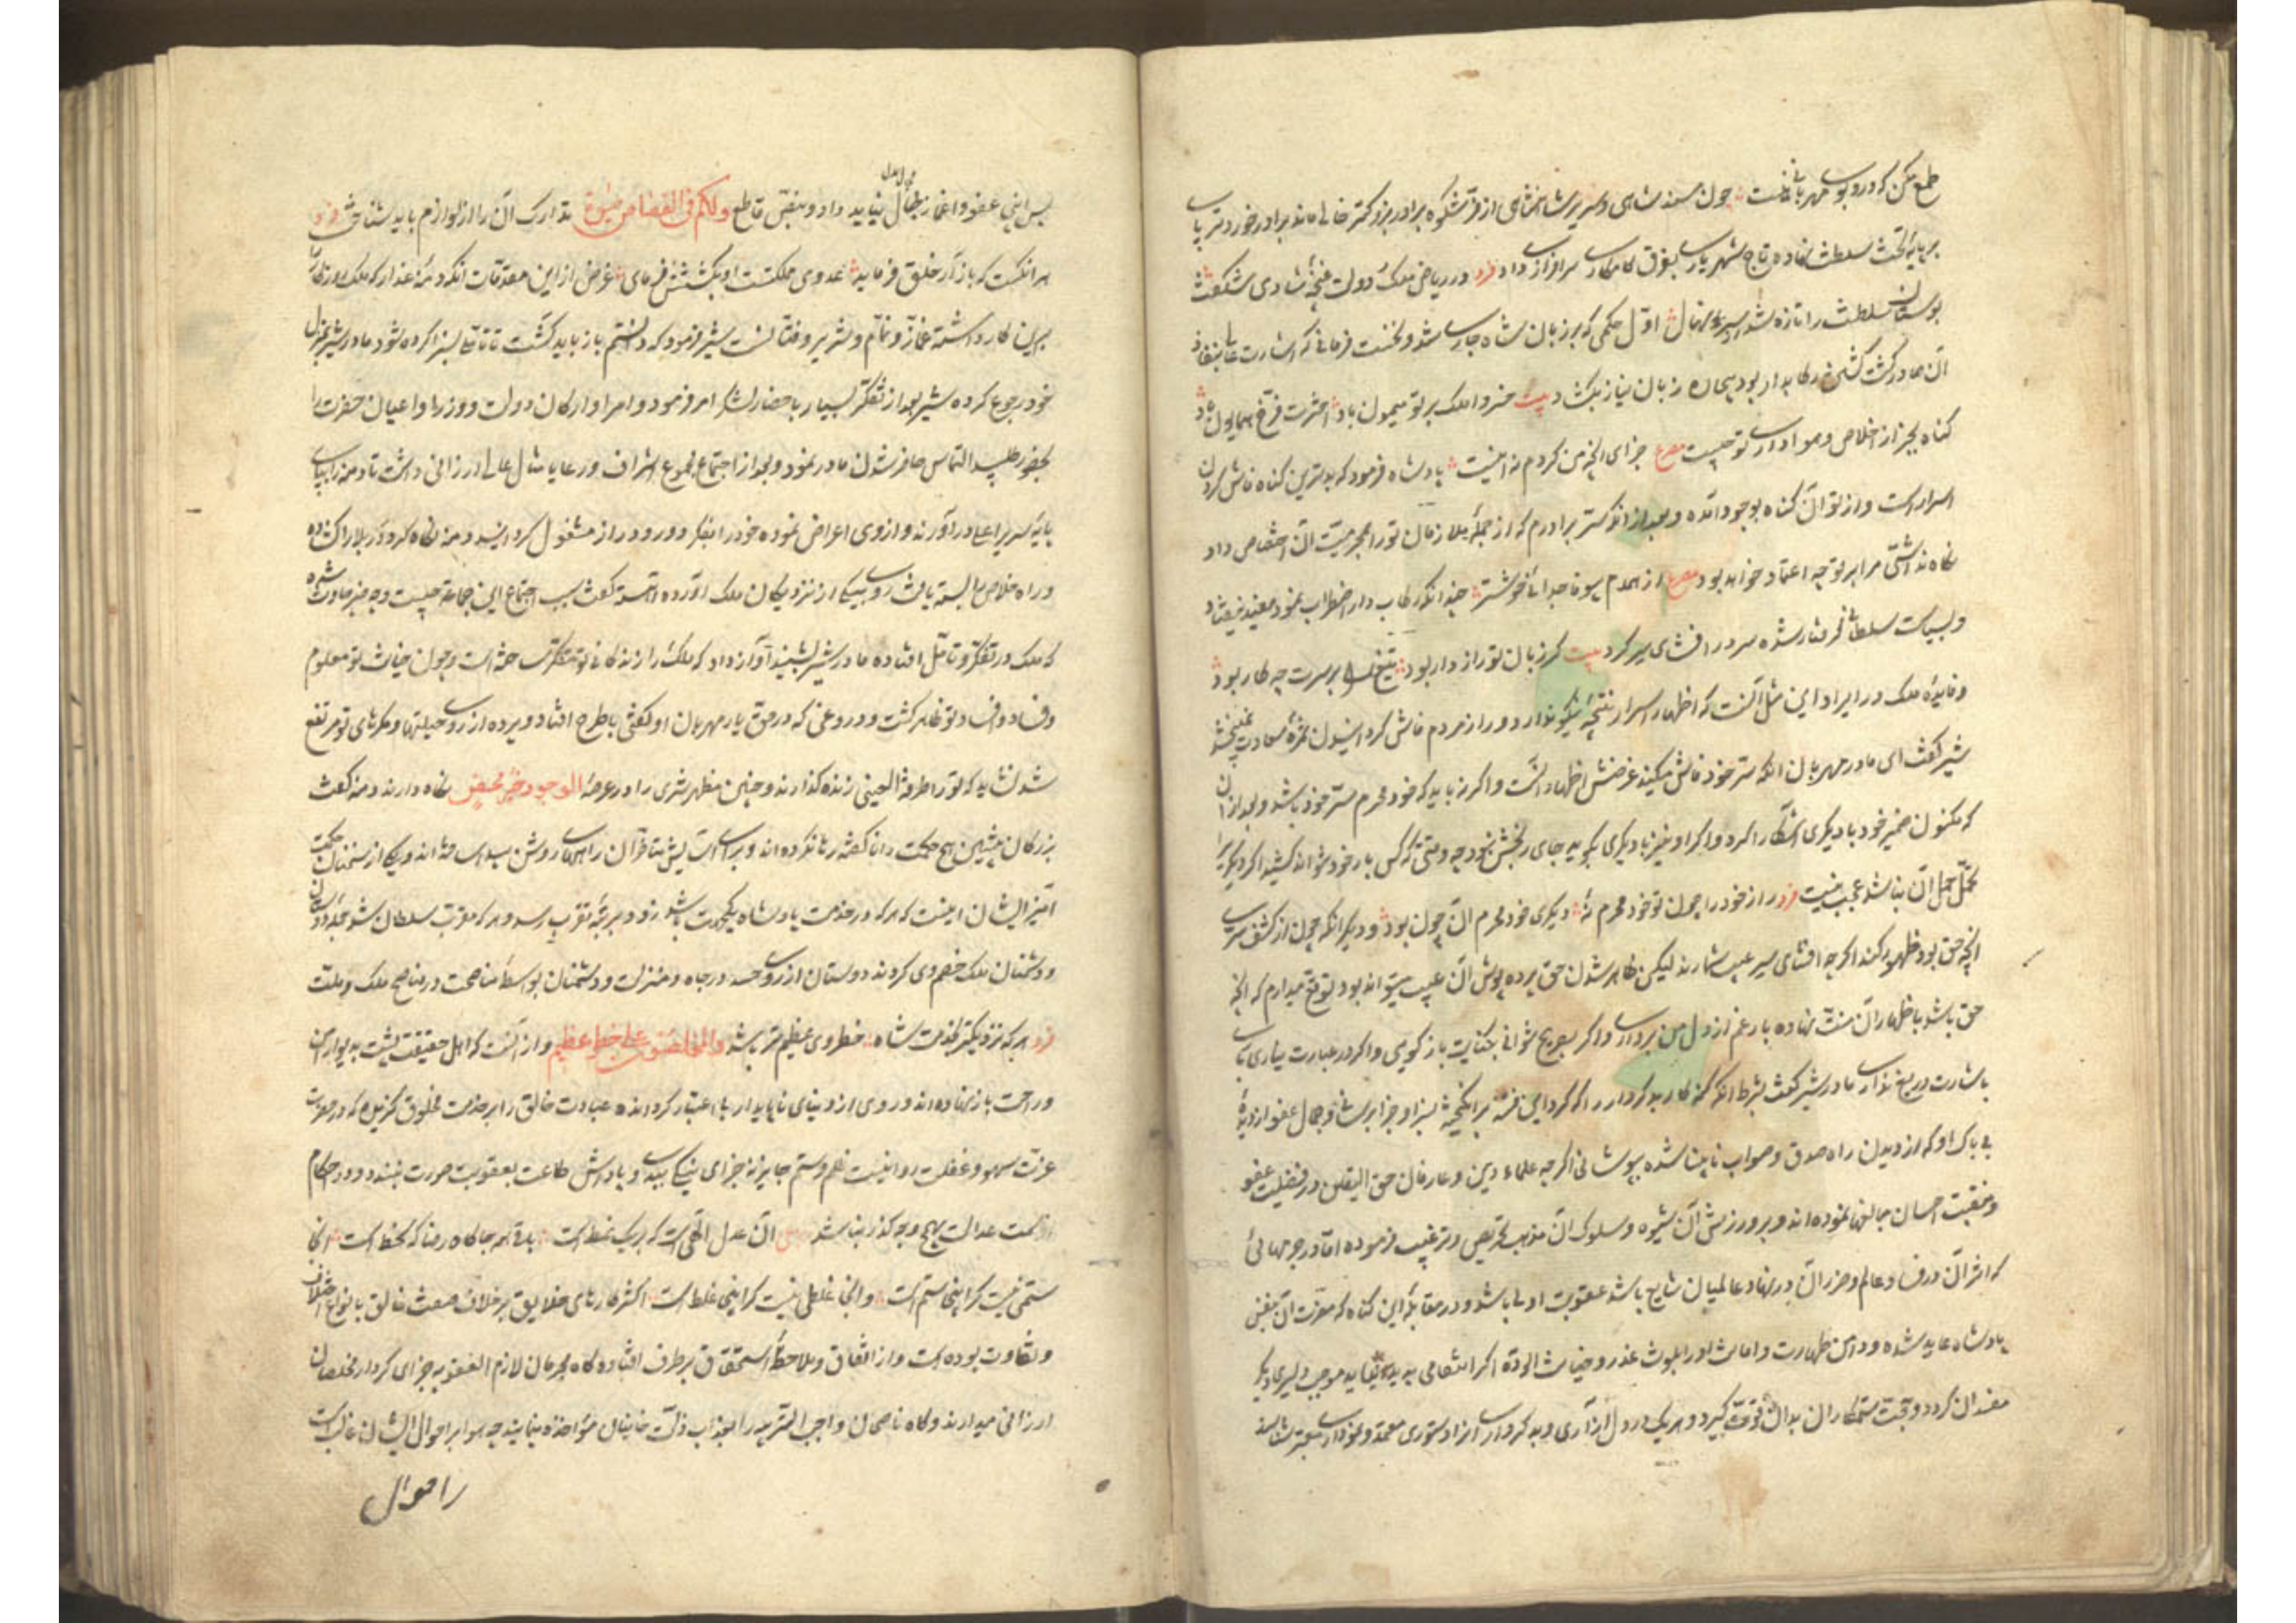 طمع مکن که درو بوی مهربانی نیست چون مسند شاهی و سریر شاهنشاهی از فر شکوه برادر بزرکتر خالی ماند برادر خوردتر پای
بر پایهٔ تخت سلطنت نهاده تاج شهریاری بفرق کامکاری سرافرازی داد فرد در ریاض ملک دولت غنچهٔ شادی شکفت
بوستان سلطنت را تازه شد نهال اول حکمی که بر زبان شاه جاری شد و نخست فرمانی که اشارت عالی بنفاذ
آن صادر کشت کشتن رکابدار بود بیچاره زبان نیاز بکشاد بیت خسروا ملک بر تو میمون باد اخترت فرخ همایون باد
کناه بجز از اخلاص و هواداری تو چیست مصرع جزای آنچه من کردم نه اینست پادشاه فرمود که بدترین کناه فاش کردن
اسرارست و از تو آن کناه بوجود آمده و بعد از آنکه سر برادرم که از جملهٔ ملازمان تو را بمحرمیت آن اختصاص داد
نکاه نداشتی مرا بر تو چه اعتماد خواهد بود مصرع از همدم بیوفا جدائی خوشتر چندانکه رکاب دار اضطراب نمود مفید نیفتاد
و بسیاست سلطانی کرفتار شده سر در افشای سر کرد بیت کر زبان تو راز دار بود تیغ را بر سرت چه کار بود
و فایدهٔ ملک در ایراد این مثل آنست که اظهار اسرار نتیجهٔ نیکو ندارد و راز مردم فاش کردانیدن ثمرهٔ سعادت نبخشد
شیر کفت ای مادر مهربان آنکه سر خود فاش میکند غرضش اظهار آنست و اکرنه باید که خود محرم سر خود باشد و بعد از آن
که مکنون ضمیر خود با دیکری آشکارا کرد و اکر او نیز با دیکری بکوید جای رنجش نبود چه وقتی که کس بار خود نتواند کشید اکر دیکری
تحمل حمل آن نباشد عجب نیست فرد راز خود را چون تو خود محرم نهٔ دیکری خود محرم آن چون بود و دیکر آنکه چون از کشف سر
آنچه حق بود ظهور کند اکرچه افشای سر عیب شمارند لیکن ظاهر شدن حق پرده پوش آن عیب میتواند بود توقع میدارم که آنچه
حق باشد باظهار آن منت نهاده بار غم از دل من برداری و اکر بصریح نتوانی بکنایت باز کوئی و اکر در عبارت نیاری
باشارت دریغ نداری مادر شیر کفت بشرط آنکه کنه کار بدکردار را که کرد این فتنه برانکیخته بسزا و جزا برسانی و جمال عفو از دیدهٔ
بی باک او که از دیدن راه صدق و صواب نابینا شده بپوشانی اکرچه علماء دین و عارفان حق الیقین در فضیلت عفو
و منقبت احسان مبالغها نموده اند و بر ورزش آن شیوه و سلوک آن مذهب تحریص و ترغیب فرموده اما در جرمهائی
که اثر آن در فساد عالم و ضرر آن در نهاد عالمیان شایع باشد عقوبت اولی باشد و در مقابلهٔ این کناه که مضرت آن بنفس
پادشاه عاید شده و دامن طهارت و امانت او را بلوث غدر و خیانت آلوده اکر انتقامی پدید نیاید موجب دلیری دیکر
مفسدان کردد و حجت ستمکاران بدان قوت کیرد و هر یک در دل آزاری و بدکرداری آنرا دستوری معتمد و نموداری معتبر شناسند
پس اینجا عفو و اغماض را مجال نباید داد و بنص قاطع ولکم فی القصاص حیوة تدارک آن را از لوازم باید شناخت فرد
هر آنکست که بازآر خلق فرماید عدوی مملکتست او بکشتنش فرمای غرض از این مقدمات آنکه دمنهٔ غدار که ملک روزکار را
برین کار داشته غماز و نمام و شریر و فتانست شیر فرمود که دانستم باز باید کشت تا تأملی بسزا کرده شود مادر شیر بمنزل
خود رجوع کرده شیر بعد از تفکر بسیار باحضار لشکر امر فرمود و امرا و ارکان دولت و وزرا و اعیان حضرت را
بحضور طلبید التماس حاضر شدن مادر نمود و بعد از اجتماع مجموع اشراف و رعایا مثال عالی ارزانی داشت تا دمنه را بپای
پایهٔ سریر اعلی درآورند و از وی اعراض نموده خود را بفکر دور و دراز مشغول کردانید دمنه نکاه کرد و در بلا را کشاده
و راه خلاص را بسته یافت روی بیکی از نزدیکان ملک آورده آهسته کفت سبب اجتماع این جماعت چیست و چه چیز حادث شده
که ملک در تفکر و تأمل افتاده مادر شیر بشنید آواز داد که ملک را زندکانی تو متفکر ساخته است و چون خیانت تو معلوم
و فساد و افساد تو ظاهر کشت و دروغی که در حق یار مهربان او کفتی باطرح افتاد و پرده از روی حیلتها و مکرهای تو مرتفع
شد نشاید که تو را طرفة العینی زنده کذارند و چنین مظهر شری را در عرصهٔ الوجود خیر محض نکاه دارند دمنه کفت
بزرکان پیشین هیچ حکمت را ناکفته رها نکرده اند و برای آسایش متأخران راههای روشن ساخته اند و یکی از سخنان حکمت
آمیز ایشان اینست که هر که در خدمت پادشاه یکجهت باشد زود بمرتبهٔ تقرب رسد و هر که مقرب سلطان شود همهٔ دوستان
و دشمنان ملک خصم وی کردند دوستان از روی حسد در جاه و منزلت و دشمنان بواسطهٔ مناصحت در مصالح ملک و ملت
فرد هر که نزدیکتر بخدمت شاه خطر وی عظیم تر باشد والمخلصون علی خطر عظیم و از آنست که اهل حقیقت پشت بدیوار امن
و راحت باز نهاده اند و روی از دنیای ناپایدار بی اعتبار کردانده عبادت خالق را بر خدمت مخلوق کزیده که در حضرت
عزت سهو و غفلت روا نیست ظلم و ستم جایز نه جزای نیکی ببدی و پاداش طاعت بعقوبت صورت نبندد و در احکام
از سمت عدالت بهیچ وجه کذر نباشد آن عدل الهی است که بر یک نمط است باقی همه جا کاه رضا که سخط است آنجا
ستمی نیست کر اینجا ستم است وانجا غلطی نیست کر اینجا غلط است اکثر کارهای خلایق بر خلاف صفت خالق بانواع اختلاف
و تفاوت بوده است و از اتفاق و ملاحظهٔ استحقاق بر طرف افتاده کاه مجرمان لازم العقوبه جزای کردار مخلصان
ارزانی میدارند و کاه ناصحان واجب التربیه را بعذاب ذلت خاینان مؤاخذه مینمایند چه هوا بر احوال ایشان غالب است
را حوال